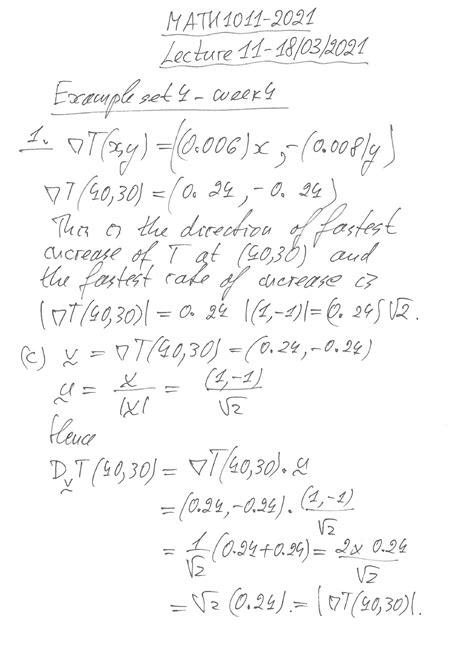 MATH1011-2021
Lecture 11-18/03/2021
Example set 4 - week 4
1. ∇T(x,y) = ((0.006)x, -(0.008)y)
∇T(40,30) = (0.24, -0.24)
This is the direction of fastest
increase of T at (40,30) and
the fastest rate of increase is
|∇T(40,30)| = 0.24 |(1,-1)| = (0.24)√2.
(c) v = ∇T(40,30) = (0.24,-0.24)
u = v/|v| = (1,-1)/√2
Hence
D_v T(40,30) = ∇T(40,30).u
= (0.24,-0.24).(1,-1)/√2
= 1/√2 (0.24+0.24) = 2x0.24/√2
= √2 (0.24). = |∇T(40,30)|.